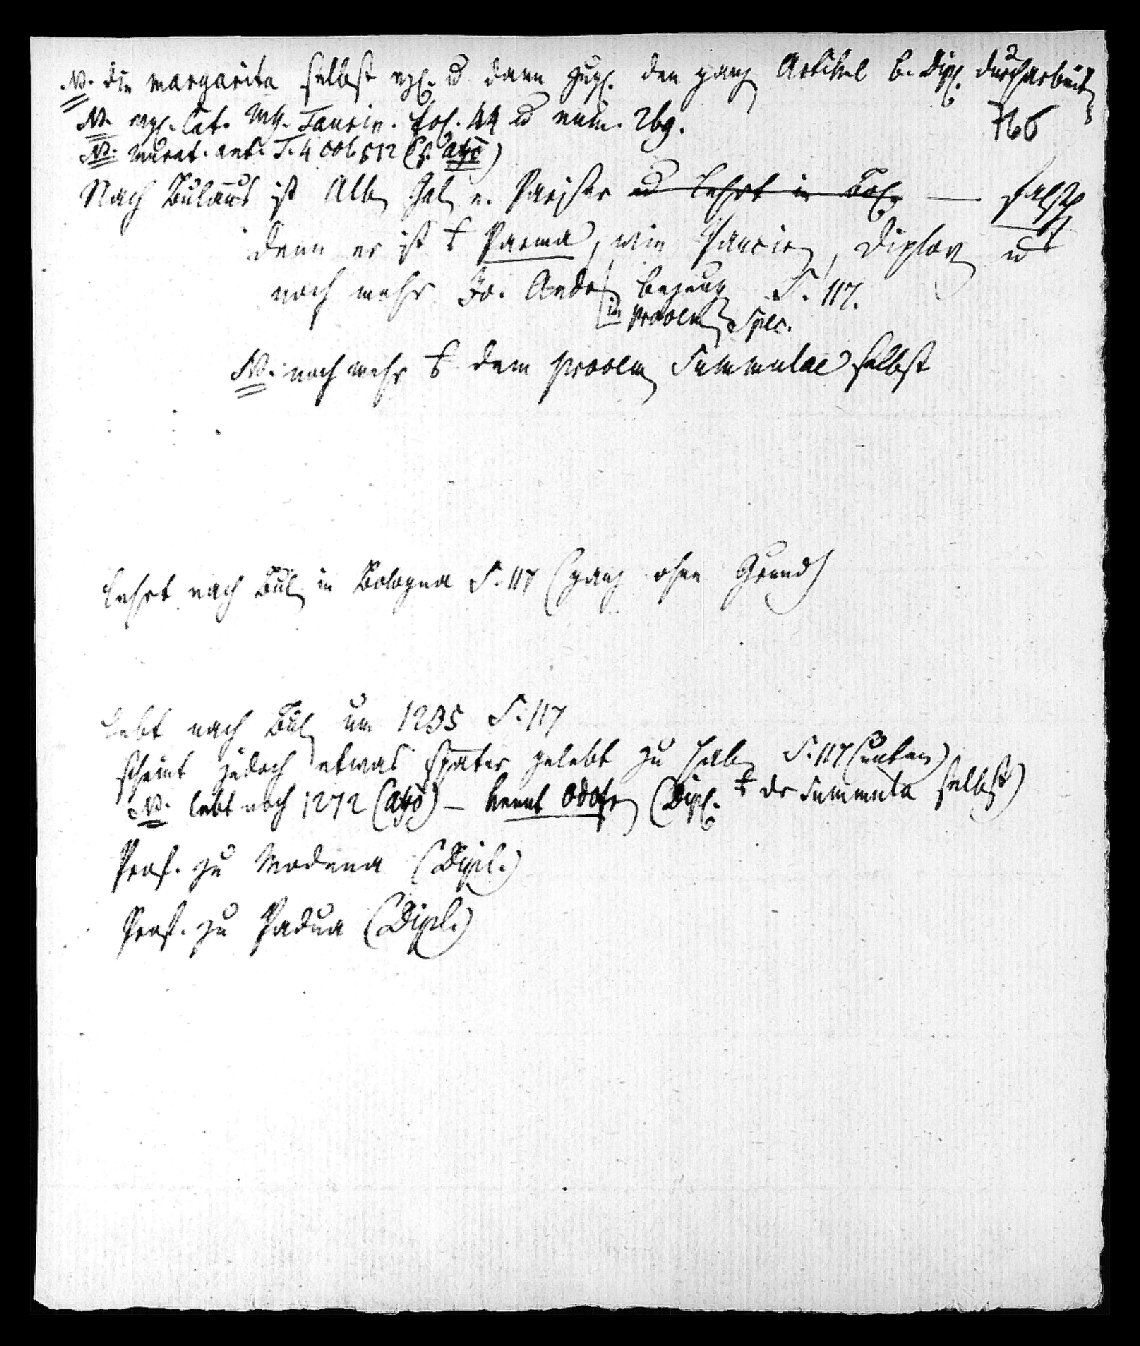 NB. die margarita selbst vgl. u. dann zugl. den ganz Artikel b. Dipl. durcharbeit
NB. vgl. Cat. Ms. Taurin. fol. 44 u num. 269.
766
NB. murat. ant. T. 4 col 512 (s. ayo)
Nach Buläus ist Alb Gal e. Pariser u lehrt in Bol — falsch
denn er ist Parma, wie Pancir, Diplov u
noch mehr Jo. Andr bezeug S. 117.
in prooem Spec.
NB. noch mehr dem prooem Summulae selbst
Lehrt nach Bul in Bologna S. 117 (ganz ohne Grund)
Lebt nach Bul um 1235 S. 117
scheint jedoch etwas später gelebt zu hab S. 117 (unten)
NB. lebt noch 1272 (ayo) — kennt Odofr (Dipl. de Summula selbst)
Prof. zu Modena (Dipl.)
Prof. zu Padua (Dipl.)